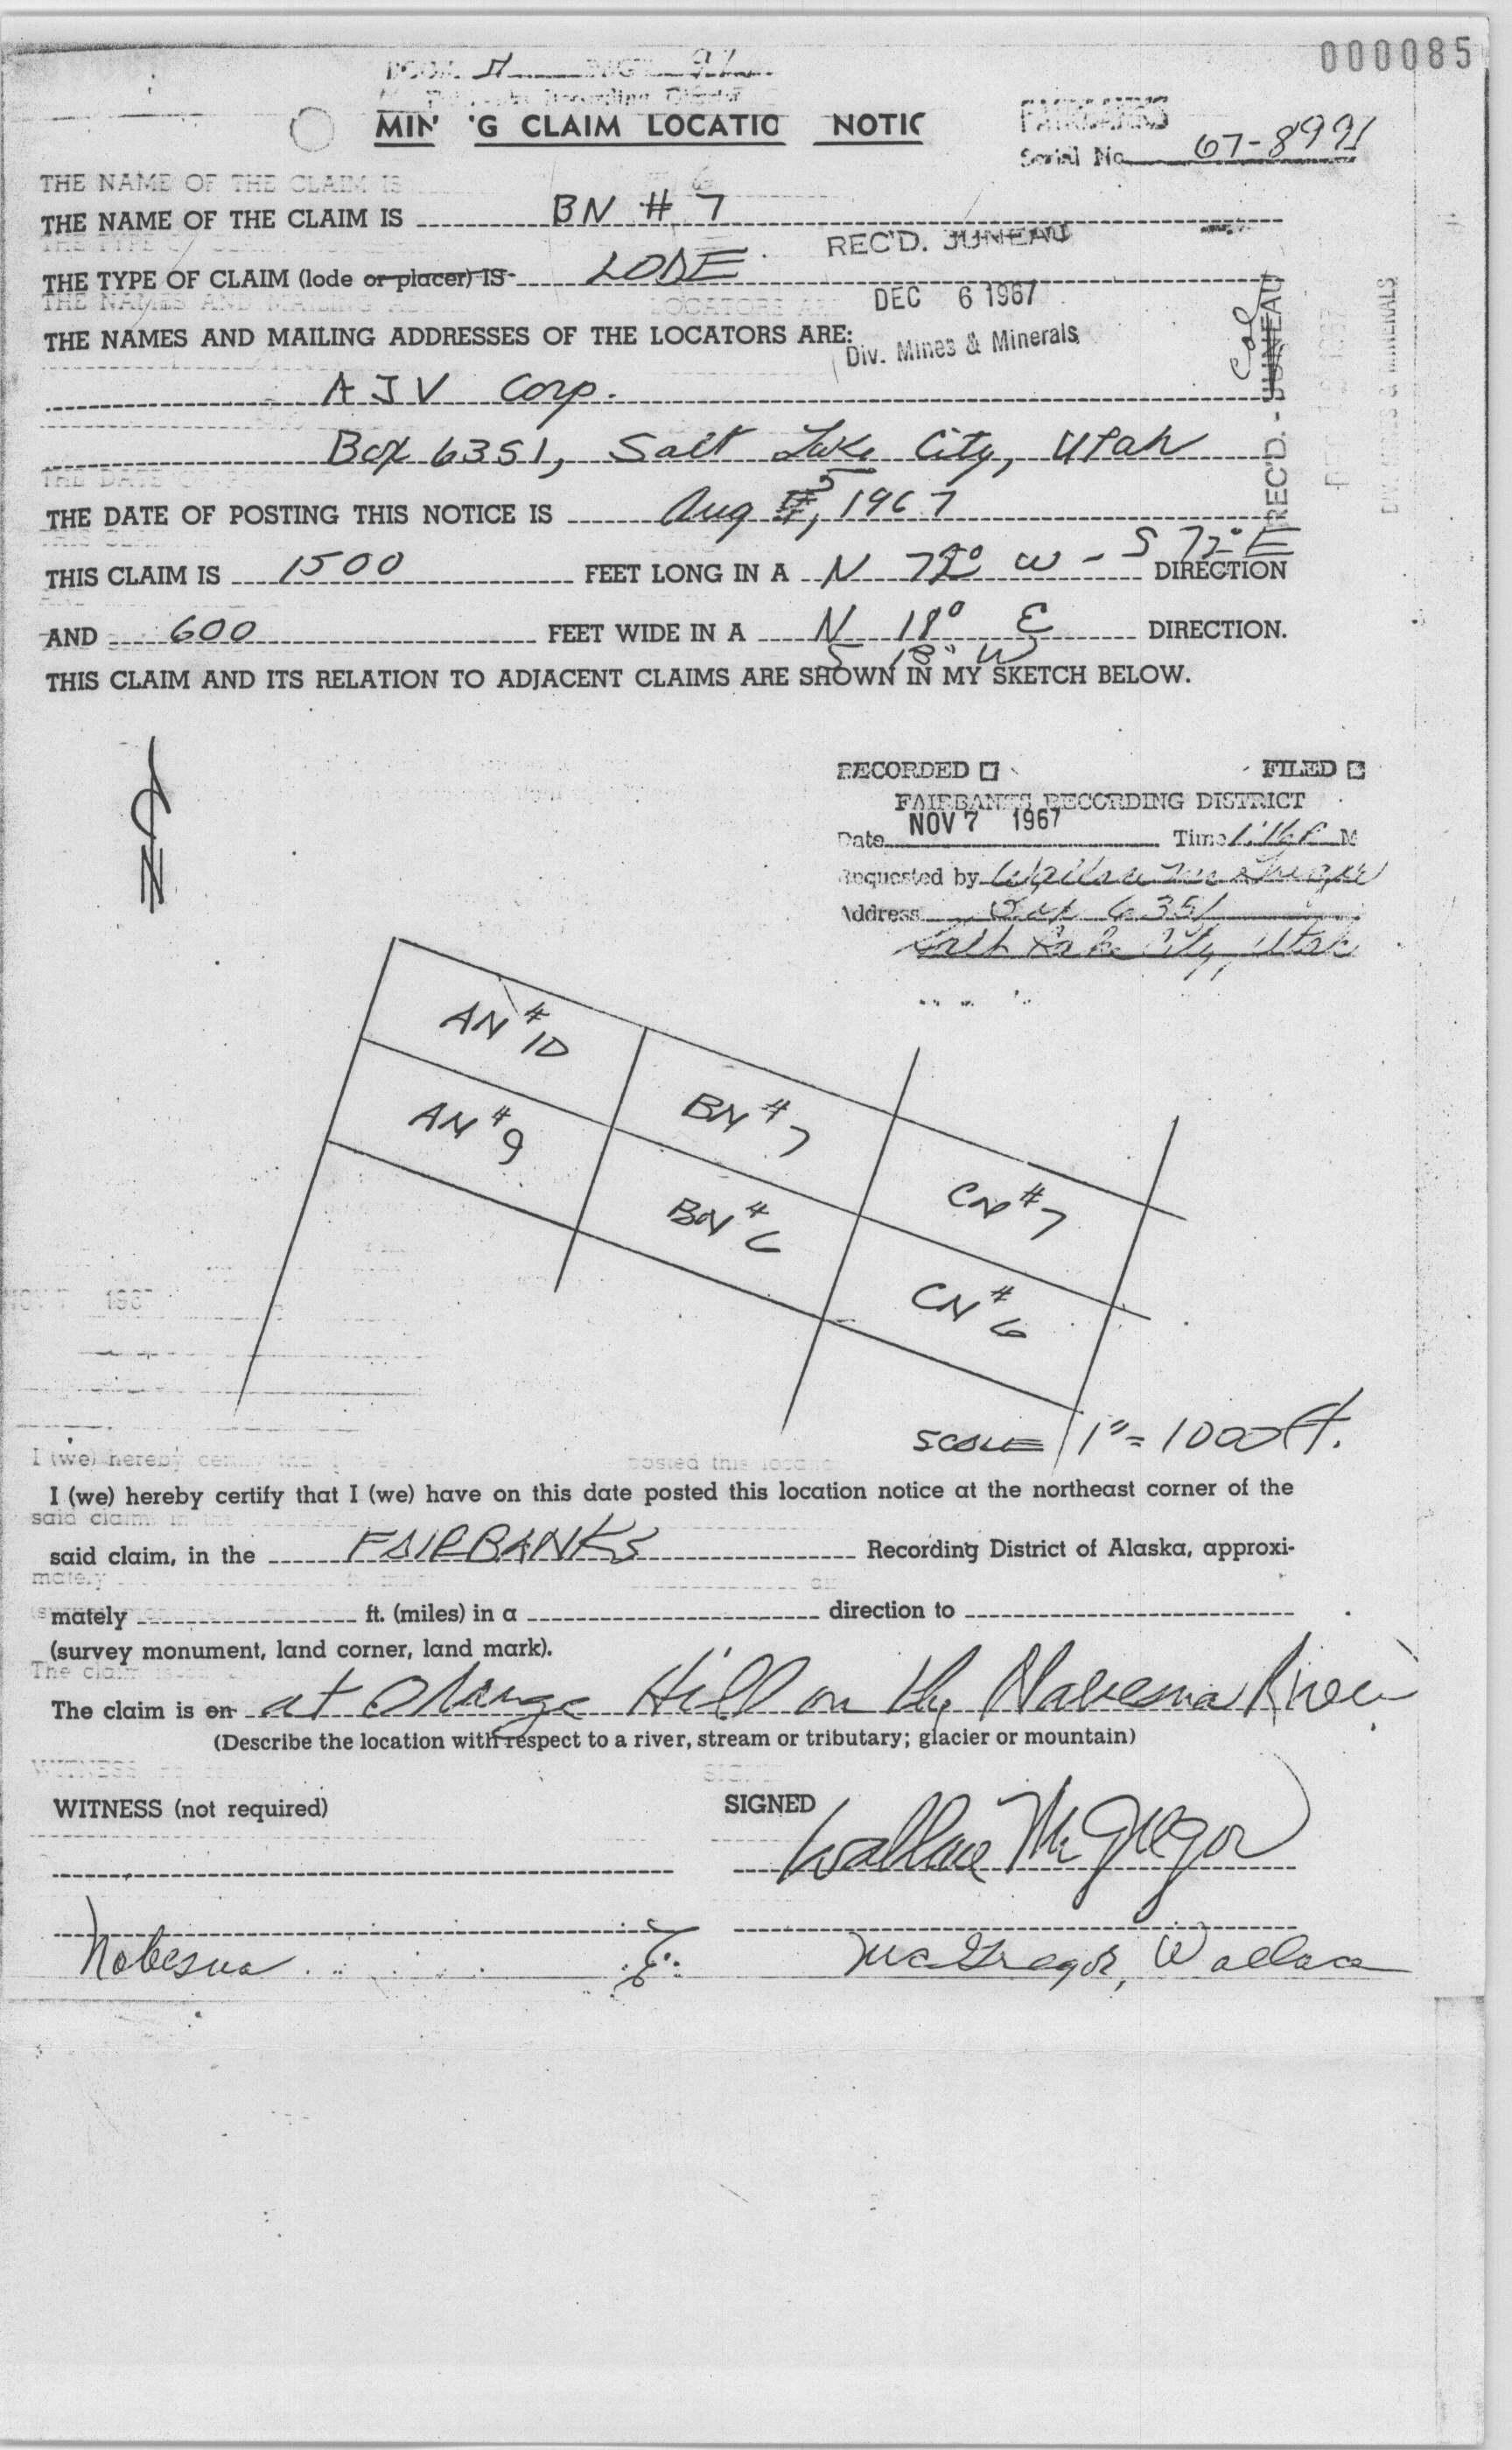 000085
MIN 'G CLAIM LOCATIO NOTIC
FAIRBANKS
Serial No. 67-8991
THE NAME OF THE CLAIM IS
THE NAME OF THE CLAIM IS BN # 7
REC'D. JUNEAU
THE TYPE OF CLAIM (lode or placer) IS LODE
DEC 6 1967
THE NAMES AND MAILING ADDRESSES OF THE LOCATORS ARE:
Div. Mines & Minerals
REC'D. - JUNEAU
Col
DIV. MINES & MINERALS
AJV Corp.
Box 6351, Salt Lake City, Utah
THE DATE OF POSTING THIS NOTICE IS Aug 5, 1967
THIS CLAIM IS 1500 FEET LONG IN A N 72° W - S 72° E DIRECTION
AND 600 FEET WIDE IN A N 18° E DIRECTION.
S 18° W
THIS CLAIM AND ITS RELATION TO ADJACENT CLAIMS ARE SHOWN IN MY SKETCH BELOW.
N
RECORDED FILED
FAIRBANKS RECORDING DISTRICT
Date NOV 7 1967 Time 1:16 P M
Requested by Wallace McGregor
Address Box 6351
Salt Lake City, Utah
AN #10
AN #9
BN #7
BN #6
CN #7
CN #6
SCALE 1" = 1000 ft.
I (we) hereby certify that I (we) have on this date posted this location notice at the northeast corner of the
said claim, in the FAIRBANKS Recording District of Alaska, approxi-
mately ft. (miles) in a direction to .
(survey monument, land corner, land mark).
The claim is on at Orange Hill on the Nabesna River
(Describe the location with respect to a river, stream or tributary; glacier or mountain)
WITNESS (not required)
SIGNED
Wallace McGregor
Nabesna
McGregor, Wallace